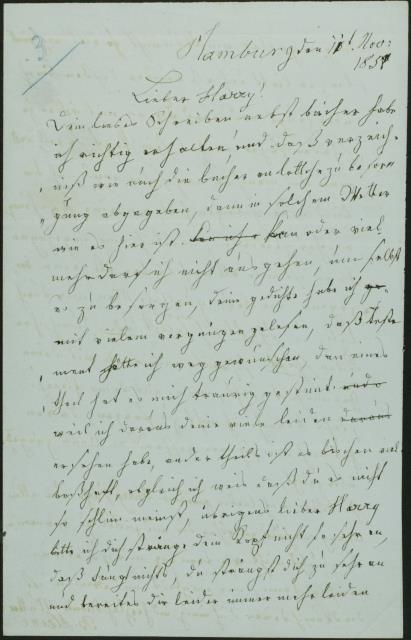 3
Hamburg den 11t Nov:
1851
Lieber Harry!
Dein liebes Schreiben nebst bücher habe
ich richtig erhalten und daß verzeich-
niß wie auch die bücher an lottchen zu besor-
gung abgegeben, den in solchem Wetter
wie es hier ist kan oder viel
mehr darf ich nicht ausgehen, um selbst
es zu besorgen, deine gedichte habe ich
mit vielem vergnügen gelesen, daß Testa
ment hätte ich weg gewünschen, den eines
theil hat es mich traurig gestimt
weil ich daraus deine viele leiden
ersehen habe, ander theils ist es bischen
boßhaft, obgleich ich weis daß du es nicht
so schlim meinst, übrigens lieber Harry
bitte ich dich stränge dein Kopf nicht so sehr an,
daß taugt nichts, du strängst dich zu sehr an
und bereitest dir leider immer mehr leiden